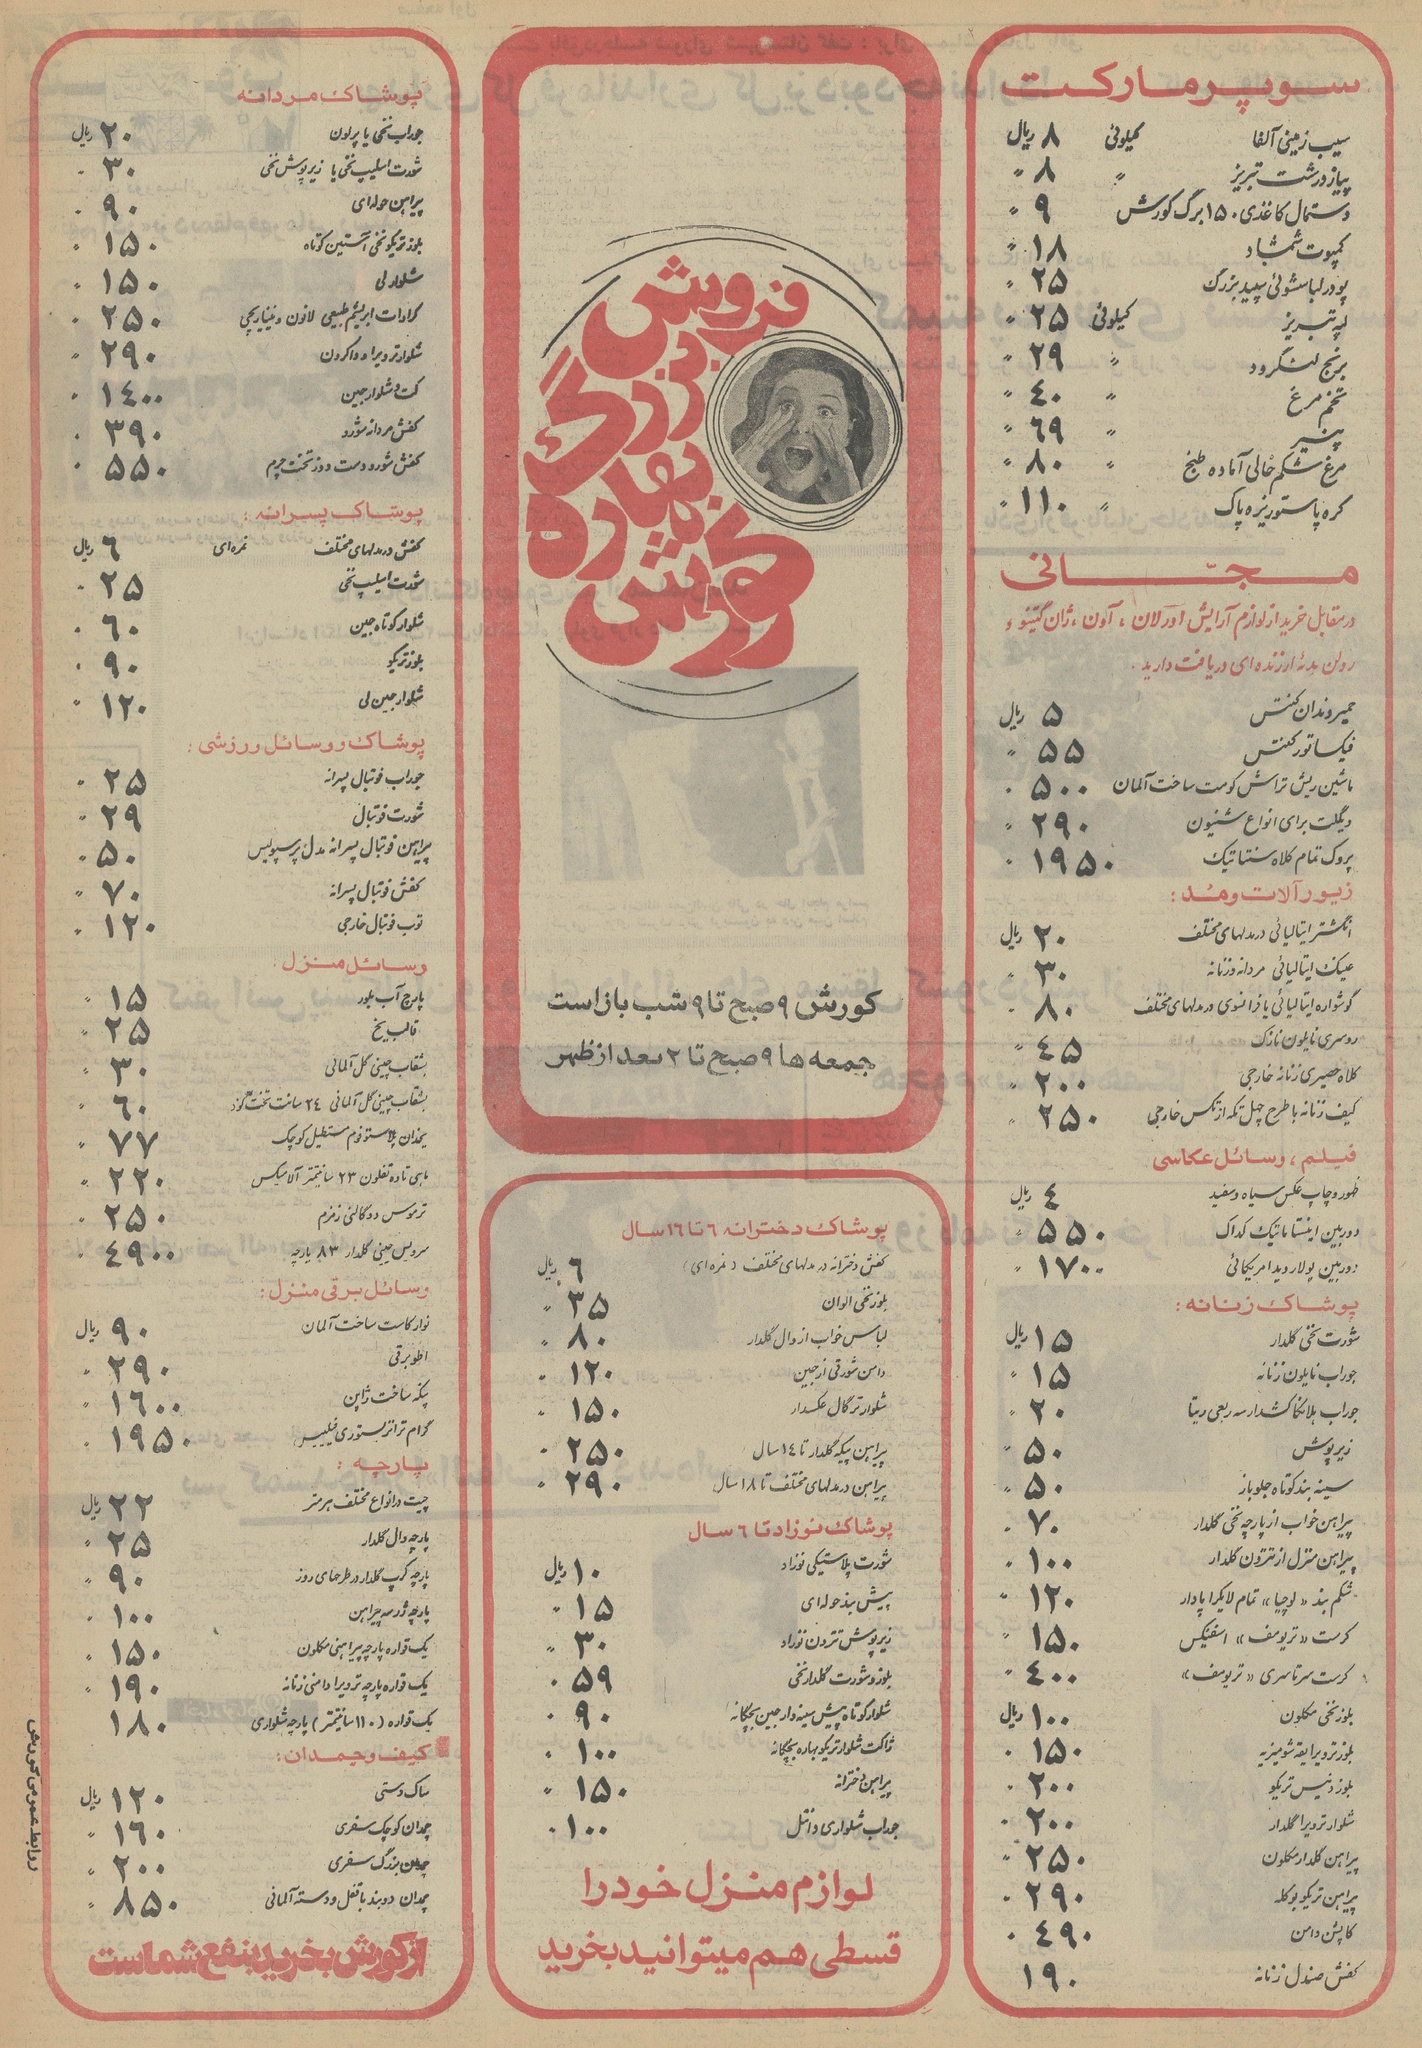 سوپر مارکت
سیب زمینی آلفا کیلوئی ۸ ریال
پیاز درشت تبریز " ۸ "
دستمال کاغذی ۱۵۰ برگ کورش ۹ "
کمپوت شمشاد ۱۸ "
پودر لباسشوئی سپید بزرگ ۲۵ "
لپه تبریز کیلوئی ۲۵ "
برنج لنگرود " ۲۹ "
تخم مرغ " ۴۰ "
پنیر " ۶۹ "
مرغ شکم خالی آماده طبخ " ۸۰ "
کره پاستوریزه پاک " ۱۱۰ "
مجّانی
در مقابل خرید از لوازم آرایش اورلان ، آون ، ژان گتینو و
رولن هدیهٔ ارزنده‌ای دریافت دارید .
خمیر دندان کنتس ۵ ریال
فیکساتور کنتس ۵۵ "
ماشین ریش تراش کومت ساخت آلمان ۵۰۰ "
دیگلت برای انواع شنیون ۲۹۰ "
پروک تمام کلاه سنتاتیک ۱۹۵۰ "
زیورآلات و مُد :
انگشتر ایتالیائی در مدلهای مختلف ۲۰ ریال
عینک ایتالیائی مردانه و زنانه ۳۰ "
گوشواره ایتالیائی یا فرانسوی در مدلهای مختلف ۸۰ "
روسری نایلون نازک ۴۵ "
کلاه حصیری زنانه خارجی ۲۰۰ "
کیف زنانه با طرح چهل تکه از تکس خارجی ۲۵۰ "
فیلم ، وسائل عکاسی
ظهور و چاپ عکس سیاه و سفید ۴ ریال
دوربین اینستاماتیک کداک ۵۵۰ "
دوربین پولاروید امریکائی ۱۷۰۰ "
پوشاک زنانه :
شورت نخی گلدار ۱۵ ریال
جوراب نایلون زنانه ۱۵ "
جوراب هلانکا کشدار سه ربعی دیتا ۲۰ "
زیرپوش ۵۰ "
سینه بند کوتاه جلو باز ۵۰ "
پیراهن خواب از پارچه نخی گلدار ۷۰ "
پیراهن منزل از تترون گلدار ۱۰۰ "
شکم بند « لوچیا » تمام لایکرا پادار ۱۲۰ "
کرست « تریومف » اسفنکس ۱۵۰ "
کرست سرتاسری « تریومف » ۴۰۰ "
بلوز نخی مکلون ۱۰۰ ریال
بلوز ترویرا یقه شومیزیه ۱۵۰ "
بلوز دنیس تریکو ۲۰۰ "
شلوار ترویرا گلدار ۲۰۰ "
پیراهن گلدار مکلون ۲۵۰ "
پیراهن تریکو بوکله ۲۹۰ "
کاپشن دامن ۴۹۰ "
کفش صندل زنانه ۱۹۰
فروش
بزرگ
بهاره
کورش
کورش ۹ صبح تا ۹ شب باز است
جمعه ها ۹ صبح تا ۲ بعد از ظهر
پوشاک دخترانه ۶ تا ۱۶ سال
کفش دخترانه در مدلهای مختلف ( نمره ای ) ۶ ریال
بلوز نخی الوان ۳۵ "
لباس خواب از وال گلدار ۸۰ "
دامن شورتی از جین ۱۲۰ "
شلوار ترگال عکسدار ۱۵۰ "
پیراهن پیکه گلدار تا ۱۴ سال ۲۵۰ "
پیراهن در مدلهای مختلف تا ۱۸ سال ۲۹۰ "
پوشاک نوزاد تا ۶ سال
شورت پلاستیکی نوزاد ۱۰ ریال
پیش بند حوله ای ۱۵ "
زیرپوش تترون نوزاد ۳۰ "
بلوز و شورت گلدار نخی ۵۹ "
شلوار کوتاه پیش سینه دار جین بچگانه ۹۰ "
ژاکت شلوار تریکو بهاره بچگانه ۱۰۰ "
پیراهن دخترانه ۱۵۰ "
جوراب شلواری دانتل ۱۰۰ "
لوازم منزل خود را
قسطی هم میتوانید بخرید
پوشاک مردانه
جوراب نخی یا پرلون ۲۰ ریال
شورت اسلیپ نخی یا زیرپوش نخی ۳۰ "
پیراهن حوله ای ۹۰ "
بلوز تریکو نخی آستین کوتاه ۱۵۰ "
شلوار لی ۱۵۰ "
کراوات ابریشم طبیعی لانون و نینیاریچی ۲۵۰ "
شلوار ترویرا و داکرون ۲۹۰ "
کت و شلوار جین ۱۴۰۰ "
کفش مردانه شورو ۳۹۰ "
کفش شورو دست دوز تخت چرم ۵۵۰ "
پوشاک پسرانه :
کفش در مدلهای مختلف نمره ای ۶ ریال
شورت اسلیپ نخی ۲۵ "
شلوار کوتاه جین ۶۰ "
بلوز تریکو ۹۰ "
شلوار جین لی ۱۲۰ "
پوشاک و وسائل ورزشی :
جوراب فوتبال پسرانه ۲۵ "
شورت فوتبال ۲۹ "
پیراهن فوتبال پسرانه مدل پرسپولیس ۵۰ "
کفش فوتبال پسرانه ۷۰ "
توپ فوتبال خارجی ۱۲۰ "
وسائل منزل :
پارچ آب بلور ۱۵ "
قالب یخ ۲۵ "
بشقاب چینی گل آلمانی ۳۰ "
بشقاب چینی گل آلمانی ۲۴ سانت تخت و گود ۶۰ "
یخدان پلاستوفوم مستطیل کوچک ۷۷ "
ماهی تابه تفلون ۲۳ سانتیمتر آلامیکس ۲۲۰ "
ترموس دو گالنی زمزم ۲۵۰ "
سرویس چینی گلدار ۸۳ پارچه ۴۹۰۰ "
وسائل برقی منزل :
نوار کاست ساخت آلمان ۹۰ ریال
اطو برقی ۲۹۰ "
پنکه ساخت ژاپن ۱۶۰۰ "
گرام ترانزیستوری فیلیپس ۱۹۵۰ "
پارچه :
چیت در انواع مختلف هر متر ۲۲ ریال
پارچه وال گلدار ۲۵ "
پارچه کرپ گلدار در طرحهای روز ۹۰ "
پارچه ژرسه پیراهن ۱۰۰ "
یک قواره پارچه پیراهنی مکلون ۱۵۰ "
یک قواره پارچه ترویرا دامنی زنانه ۱۹۰ "
یک قواره ( ۱۱۰ سانتیمتر ) پارچه شلواری ۱۸۰ "
کیف و چمدان :
ساک دستی ۱۲۰ ریال
چمدان کوچک سفری ۱۶۰ "
چمدان بزرگ سفری ۲۰۰ "
چمدان دو بند با قفل و دسته آلمانی ۸۵۰ "
از کورش بخرید بنفع شماست
روابط عمومی کورش